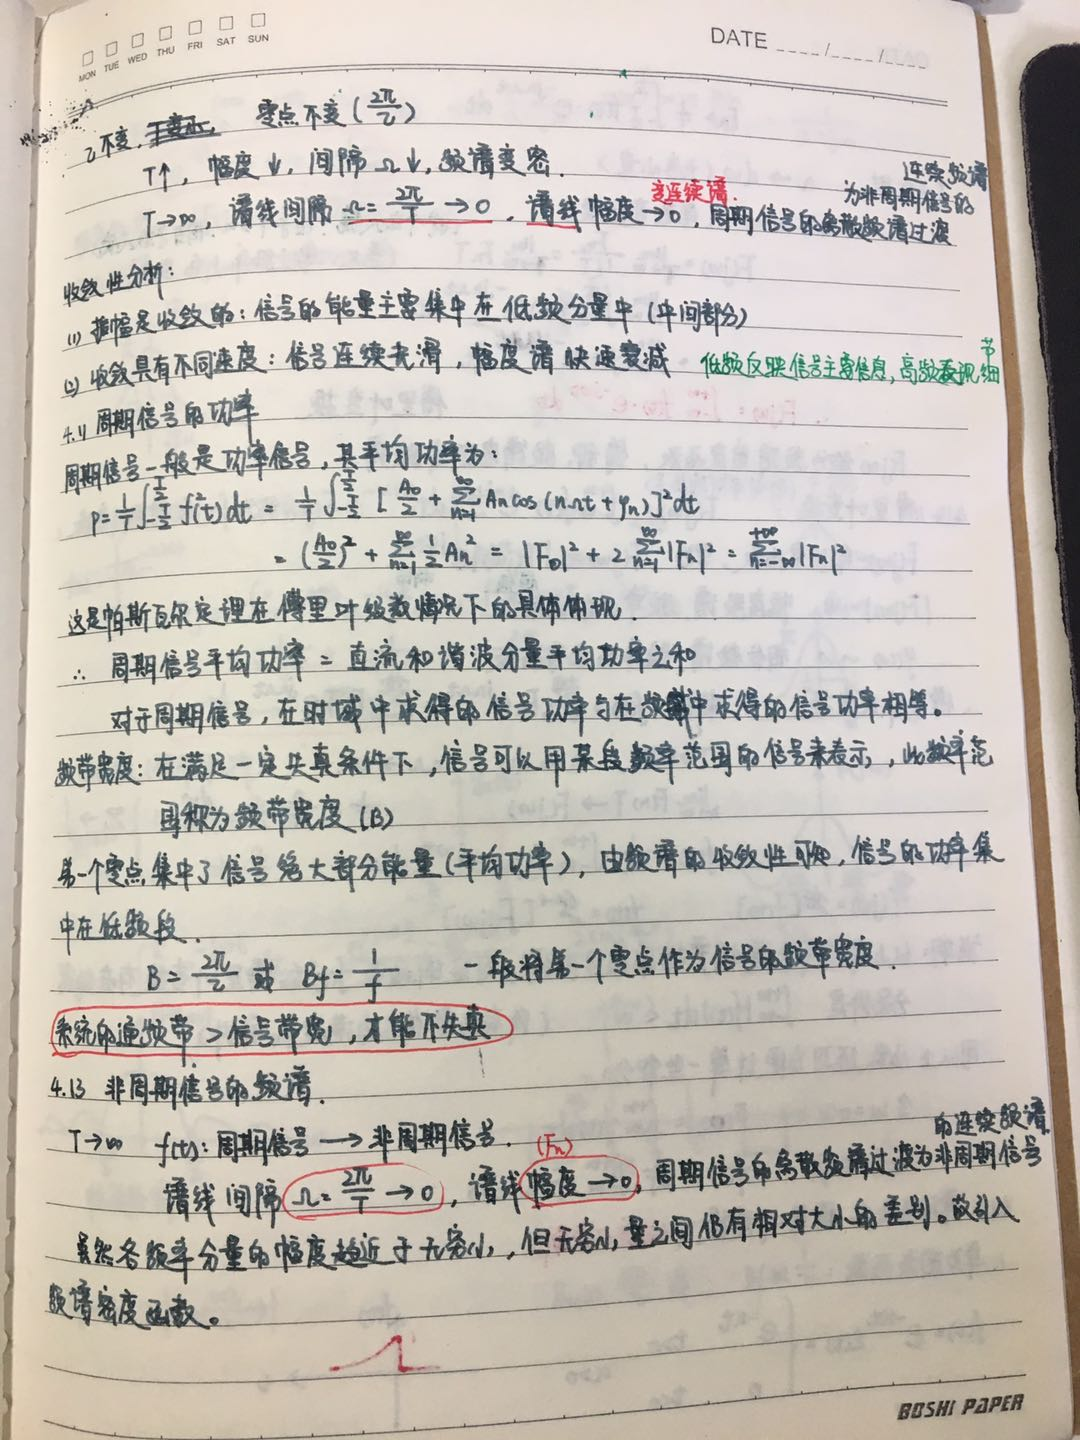 MON TUE WED THU FRI SAT SUN
DATE ____/____/____
τ不变, 零点不变(2π/τ)
T↑, 幅度↓, 间隔Ω↓, 频谱变密.
变连续谱.
连续频谱
为非周期信号的
T→∞, 谱线间隔Ω=2π/T→0, 谱线幅度→0, 周期信号的离散频谱过渡
收敛性分析:
(1) 振幅是收敛的: 信号的能量主要集中在低频分量中(中间部分)
(2) 收敛具有不同速度: 信号连续光滑, 幅度谱快速衰减 低频反映信号主要信息, 高频表现细节
4.11 周期信号的功率
周期信号一般是功率信号, 其平均功率为:
P=1/T∫_{-T/2}^{T/2} f²(t)dt = 1/T∫_{-T/2}^{T/2} [A₀/2 + Σ_{n=1}^{∞} Aₙcos(nΩt+φₙ)]²dt
= (A₀/2)² + Σ_{n=1}^{∞} 1/2 Aₙ² = |F₀|² + 2Σ_{n=1}^{∞}|Fₙ|² = Σ_{n=-∞}^{+∞}|Fₙ|²
这是帕斯瓦尔定理在傅里叶级数情况下的具体体现.
∴ 周期信号平均功率 = 直流和谐波分量平均功率之和
对于周期信号, 在时域中求得的信号功率与在频域中求得的信号功率相等。
频带宽度: 在满足一定失真条件下, 信号可以用某段频率范围的信号来表示, 此频率范
围称为频带宽度(B)
第一个零点集中了信号绝大部分能量(平均功率), 由频谱的收敛性可知, 信号的功率集
中在低频段.
B=2π/τ 或 Bf=1/f 一般将第一个零点作为信号的频带宽度.
系统的通频带>信号带宽, 才能不失真
4.13 非周期信号的频谱.
T→∞ f(t): 周期信号 → 非周期信号.
(Fn)
的连续频谱.
谱线间隔Ω=2π/T→0, 谱线幅度→0, 周期信号的离散频谱过渡为非周期信号
虽然各频率分量的幅度趋近于无穷小, 但无穷小量之间仍有相对大小的差别。故引入
频谱密度函数。
BOSHI PAPER